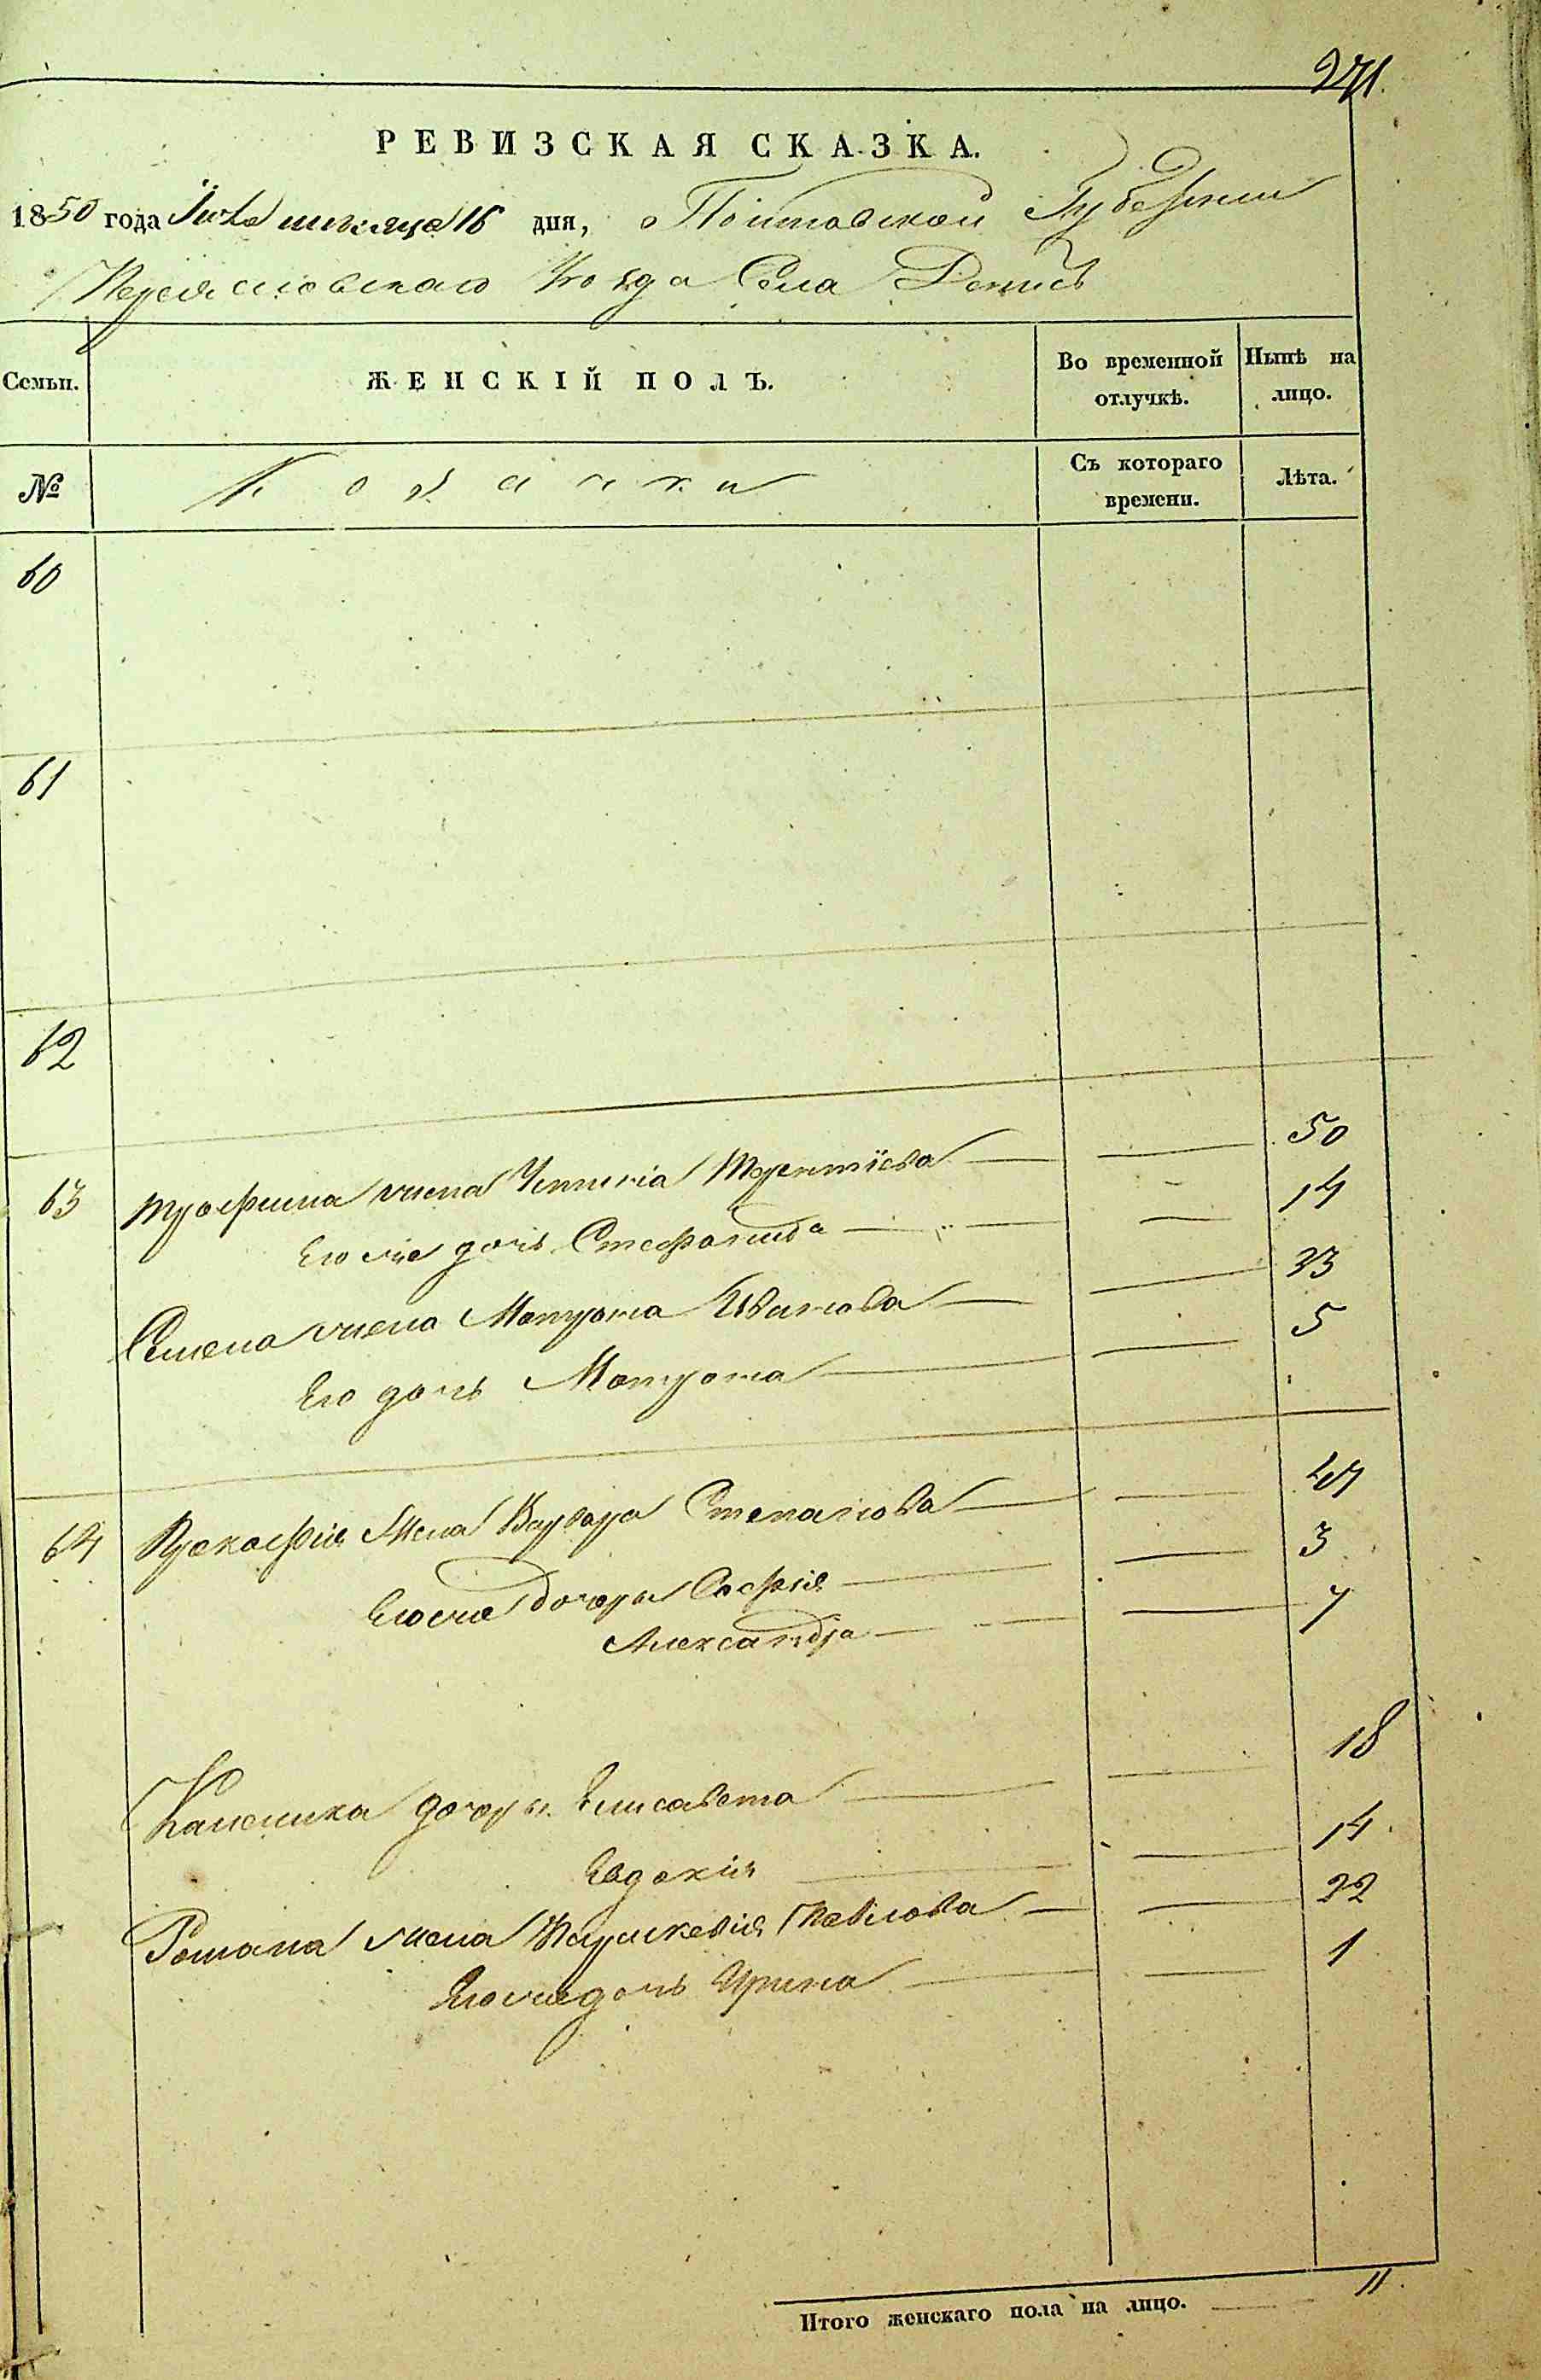 271.
РЕВИЗСКАЯ СКАЗКА.
1850 года Іюля месяца 16 дня, Полтавской Губернии
Переяславскаго Уезда Села Денисъ
Семьи. ЖЕНСКІЙ ПОЛЪ. Во временной отлучкѣ. Нынѣ на лицо.
№ Козачки Съ котораго времени. Лѣта.
60
61
62
63 Трофима жена Терентіева 50
Его же дочь Стефанида 14
Семена жена Матрона Иванова 23
Его дочь Матрона 5
64 Прокофія жена Варвара Степанова 47
Его же дочери Софія 3
Александра 7
Каленика дочери Елисавета 18
Евдокія 14
Романа жена Параскевія Павлова 22
Его же дочь Ирина 1
Итого женскаго пола на лицо. 11.